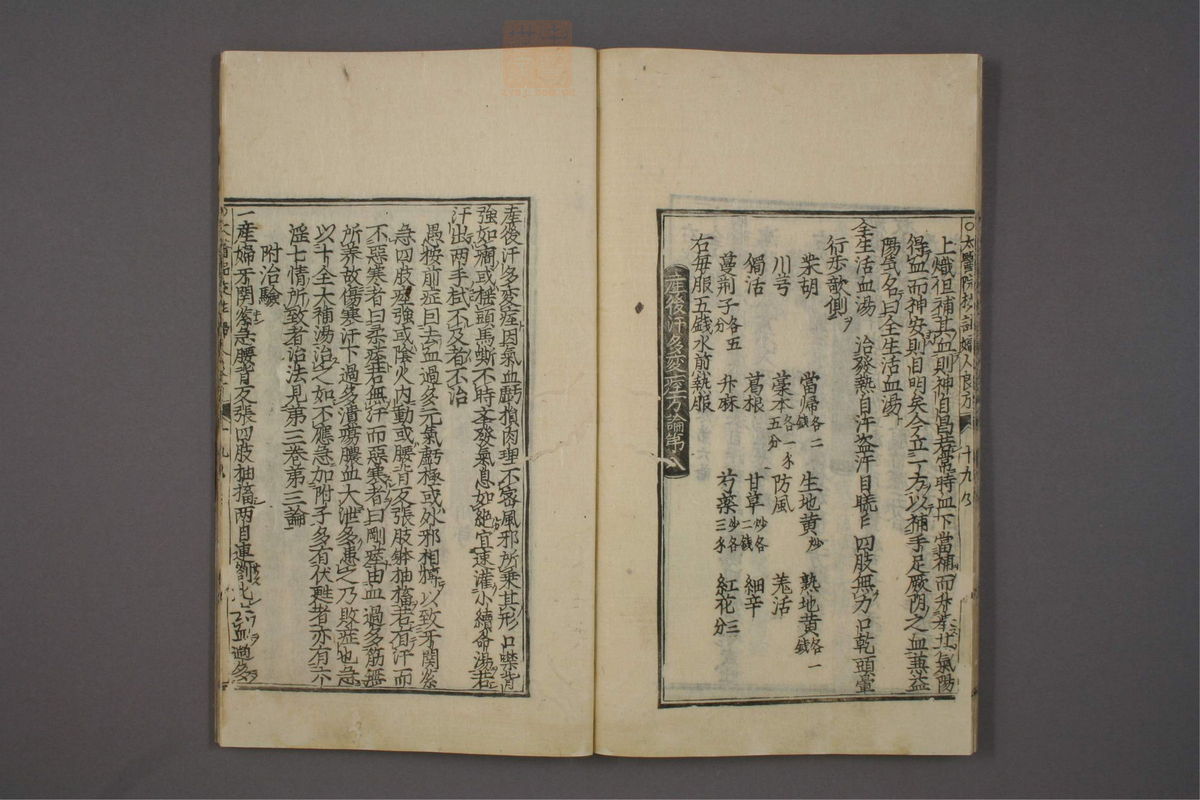 ○太醫院校註婦人良方 十九
上熾但補其血則神自昌若常時血下當補而升舉其氣陽
得血而神安則目明矣今立一方以補手足厥陰之血兼益
陽氣名曰全生活血湯
全生活血湯 治發熱自汗盗汗目䀮〻四肢無力口乾頭暈
行歩欹側
柴胡 當帰各二錢 生地黄炒 熟地黄各一錢
川芎 藁本各一錢五分 防風 羗活
獨活 葛根 甘草炒各二錢 細辛
蔓荆子各五分 升麻 芍薬炒各三錢 紅花三分
右毎服五錢水煎熱服
産後汗多変痙方論第八
産後汗多変痙因氣血虧損肉理不密風邪所乗其形口噤背
強如癎或揺頭馬嘶不時挙發氣息如絶宜速灌小續命湯若
汗出両手拭不及者不治
愚按前症曰去血過多元氣虧極或外邪相搏以致牙関緊
急四肢痙強或陰火内動或腰背反張肢体抽搐若有汗而
不惡寒者曰柔痙若無汗而惡寒者曰剛痙由血過多筋無
所養故傷寒汗下過多潰瘍膿血大泄多患之乃敗症也急
以十全大補湯治之如不應急加附子多有伏甦者亦有六
淫七情所致者治法見第三巻第三論
附治驗
一産婦牙関緊急腰背反張四肢抽搐両目連劄